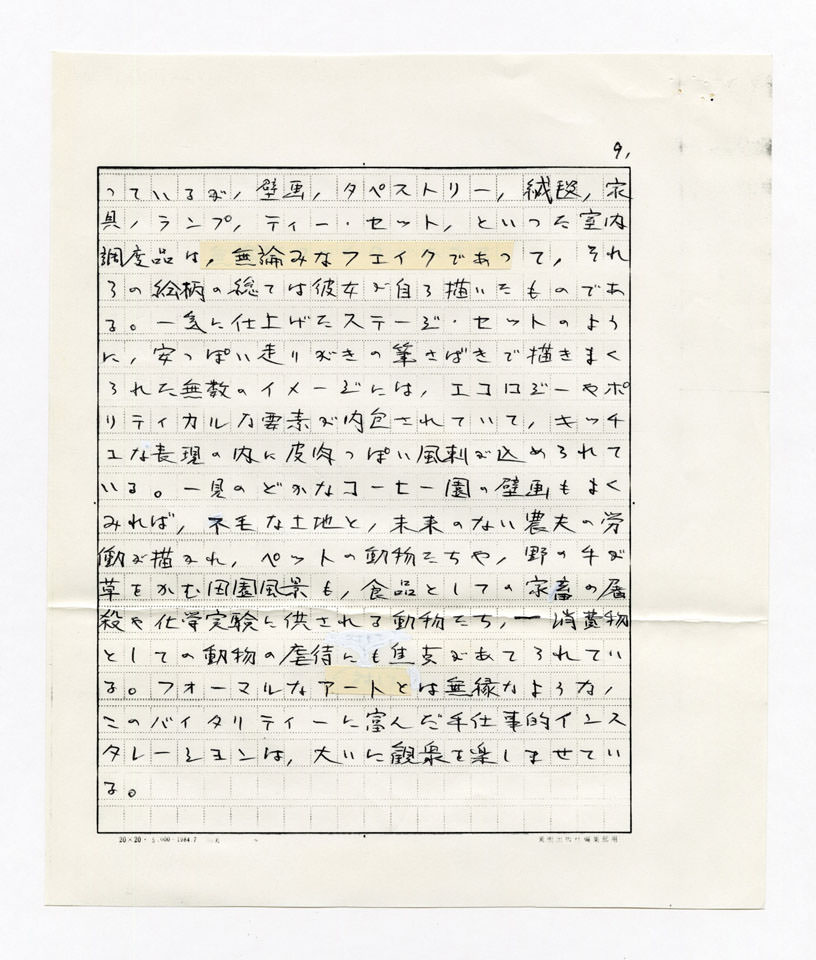 9,
っているが，壁画，タペストリー，絨毯，家
具，ランプ，ティー・セット，といった室内
調度品は，無論みなフェイクであって，それ
らの絵柄の総ては彼女が自ら描いたものであ
る。一気に仕上げたステージ・セットのよう
に，安っぽい走りがきの筆さばきで描きまく
られた無数のイメージには，エコロジーやポ
リティカルな要素が内包されていて，キッチ
ュな表現の内に皮肉っぽい風刺が込められて
いる。一見のどかなコーヒー園の壁画もよく
みれば，不毛な土地と，未来のない農夫の労
働が描かれ，ペットの動物たちや，野の牛が
草をかむ田園風景も，食品としての家畜の屠
殺や化学実験に供される動物たち，ー消費物
としての動物の虐待にも焦点があてられてい
る。フォーマルなアートとは無縁なような，
このバイタリティーに富んだ手仕事的インス
タレーションは，大いに観衆を楽しませてい
る。
20×20・5,000・1984.7
美術出版社編集部用